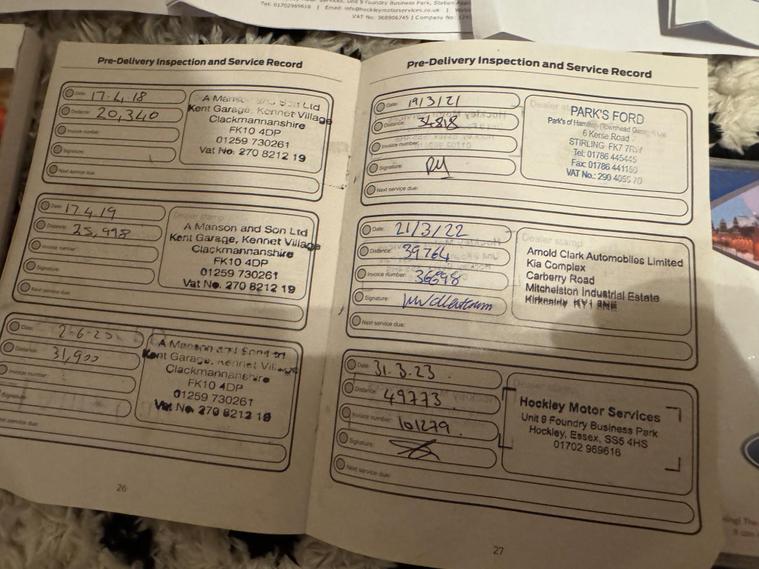 Tel: 01702969616 | Email: info@hockleymotorservices.co.uk
VAT No: 368906745 | Company No:
Pre-Delivery Inspection and Service Record
Date: 17.4.18
Distance: 20,340
Invoice number:
Signature:
Next service due:
A Manson and Son Ltd
Kent Garage, Kennet Village
Clackmannanshire
FK10 4DP
01259 730261
Vat No. 270 8212 19
Date: 17.4.19
Distance: 25,998
Invoice number:
Signature:
Next service due:
Dealer stamp
A Manson and Son Ltd
Kent Garage, Kennet Village
Clackmannanshire
FK10 4DP
01259 730261
Vat No. 270 8212 19
Date: 2-6-20
Distance: 31,900
Invoice number:
Signature:
service due:
A Manson and Son
Kent Garage, Kennet Village
Clackmannanshire
FK10 4DP
01259 730261
Vat No. 270 8212 19
26
Pre-Delivery Inspection and Service Record
Date: 19/3/21
Distance: 34818
Invoice number:
Signature:
Next service due:
Dealer stamp
PARK'S FORD
Park's of Hamilton
6 Kerse Road
STIRLING FK7
Tel: 01786 445445
Fax: 01786 441150
VAT No.: 290 4055 70
Date: 21/3/22
Distance: 39764
Invoice number: 36898
Signature:
Next service due:
Dealer stamp
Arnold Clark Automobiles Limited
Kia Complex
Carberry Road
Mitchelston Industrial Estate
Kirkcaldy KY1 3NE
Date: 31.3.23
Distance: 49773
Invoice number: 101279
Signature:
Next service due:
Dealer stamp
Hockley Motor Services
Unit 9 Foundry Business Park
Hockley, Essex, SS5 4HS
01702 969616
27